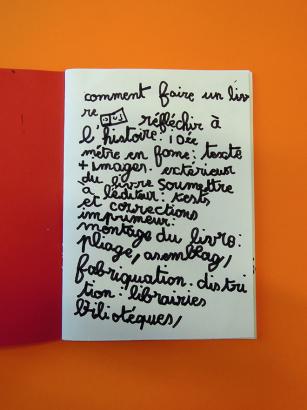 comment faire un liv
re oui réfléchir à
l'histoire: idée
métre en fome: texte
+ images. extérieur
du livre soumettre
à l'éditeur: tests
et corrections
imprimeur:
montage du livre:
pliage, asemblag,
fabriquation. distri
tion: librairies
bibliotéques,